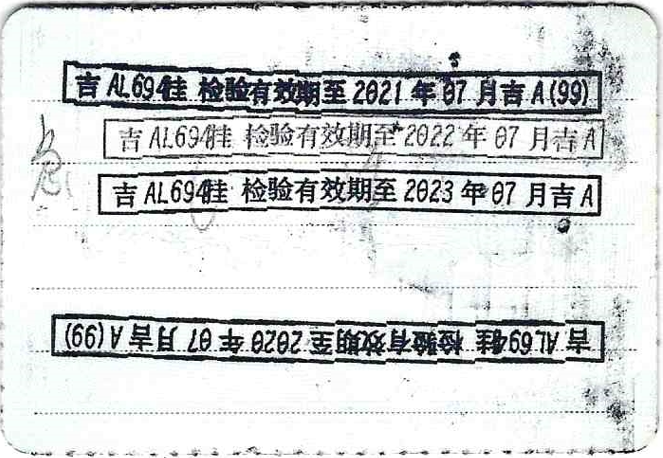 吉AL694挂 检验有效期至2021年07月吉A(99)
吉AL694挂 检验有效期至2022年07月吉A
吉AL694挂 检验有效期至2023年07月吉A
吉AL694挂 检验有效期至2020年07月吉A(99)